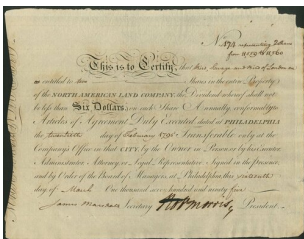 This is to Certify, that
is entitled to two Shares in the entire Property
of the NORTH AMERICAN LAND COMPANY, the Dividend whereof shall not
be less than Six Dollars on each Share Annually, conformably to
Articles of Agreement Duly Executed dated at PHILADELPHIA
the twentieth day of February 1795. Transferable only at the
Company's Office in that CITY, by the Owner in Person or by his Executor
Administrator Attorney or Legal Representative Signed in the presence
and by Order of the Board of Managers, at Philadelphia this
day of March One thousand seven hundred and ninety five
James Marshall Secretary Rob Morris President